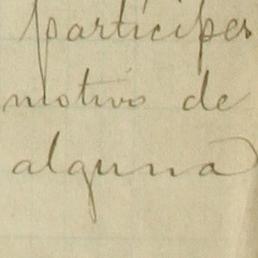 partícipes
motivo de
alguna